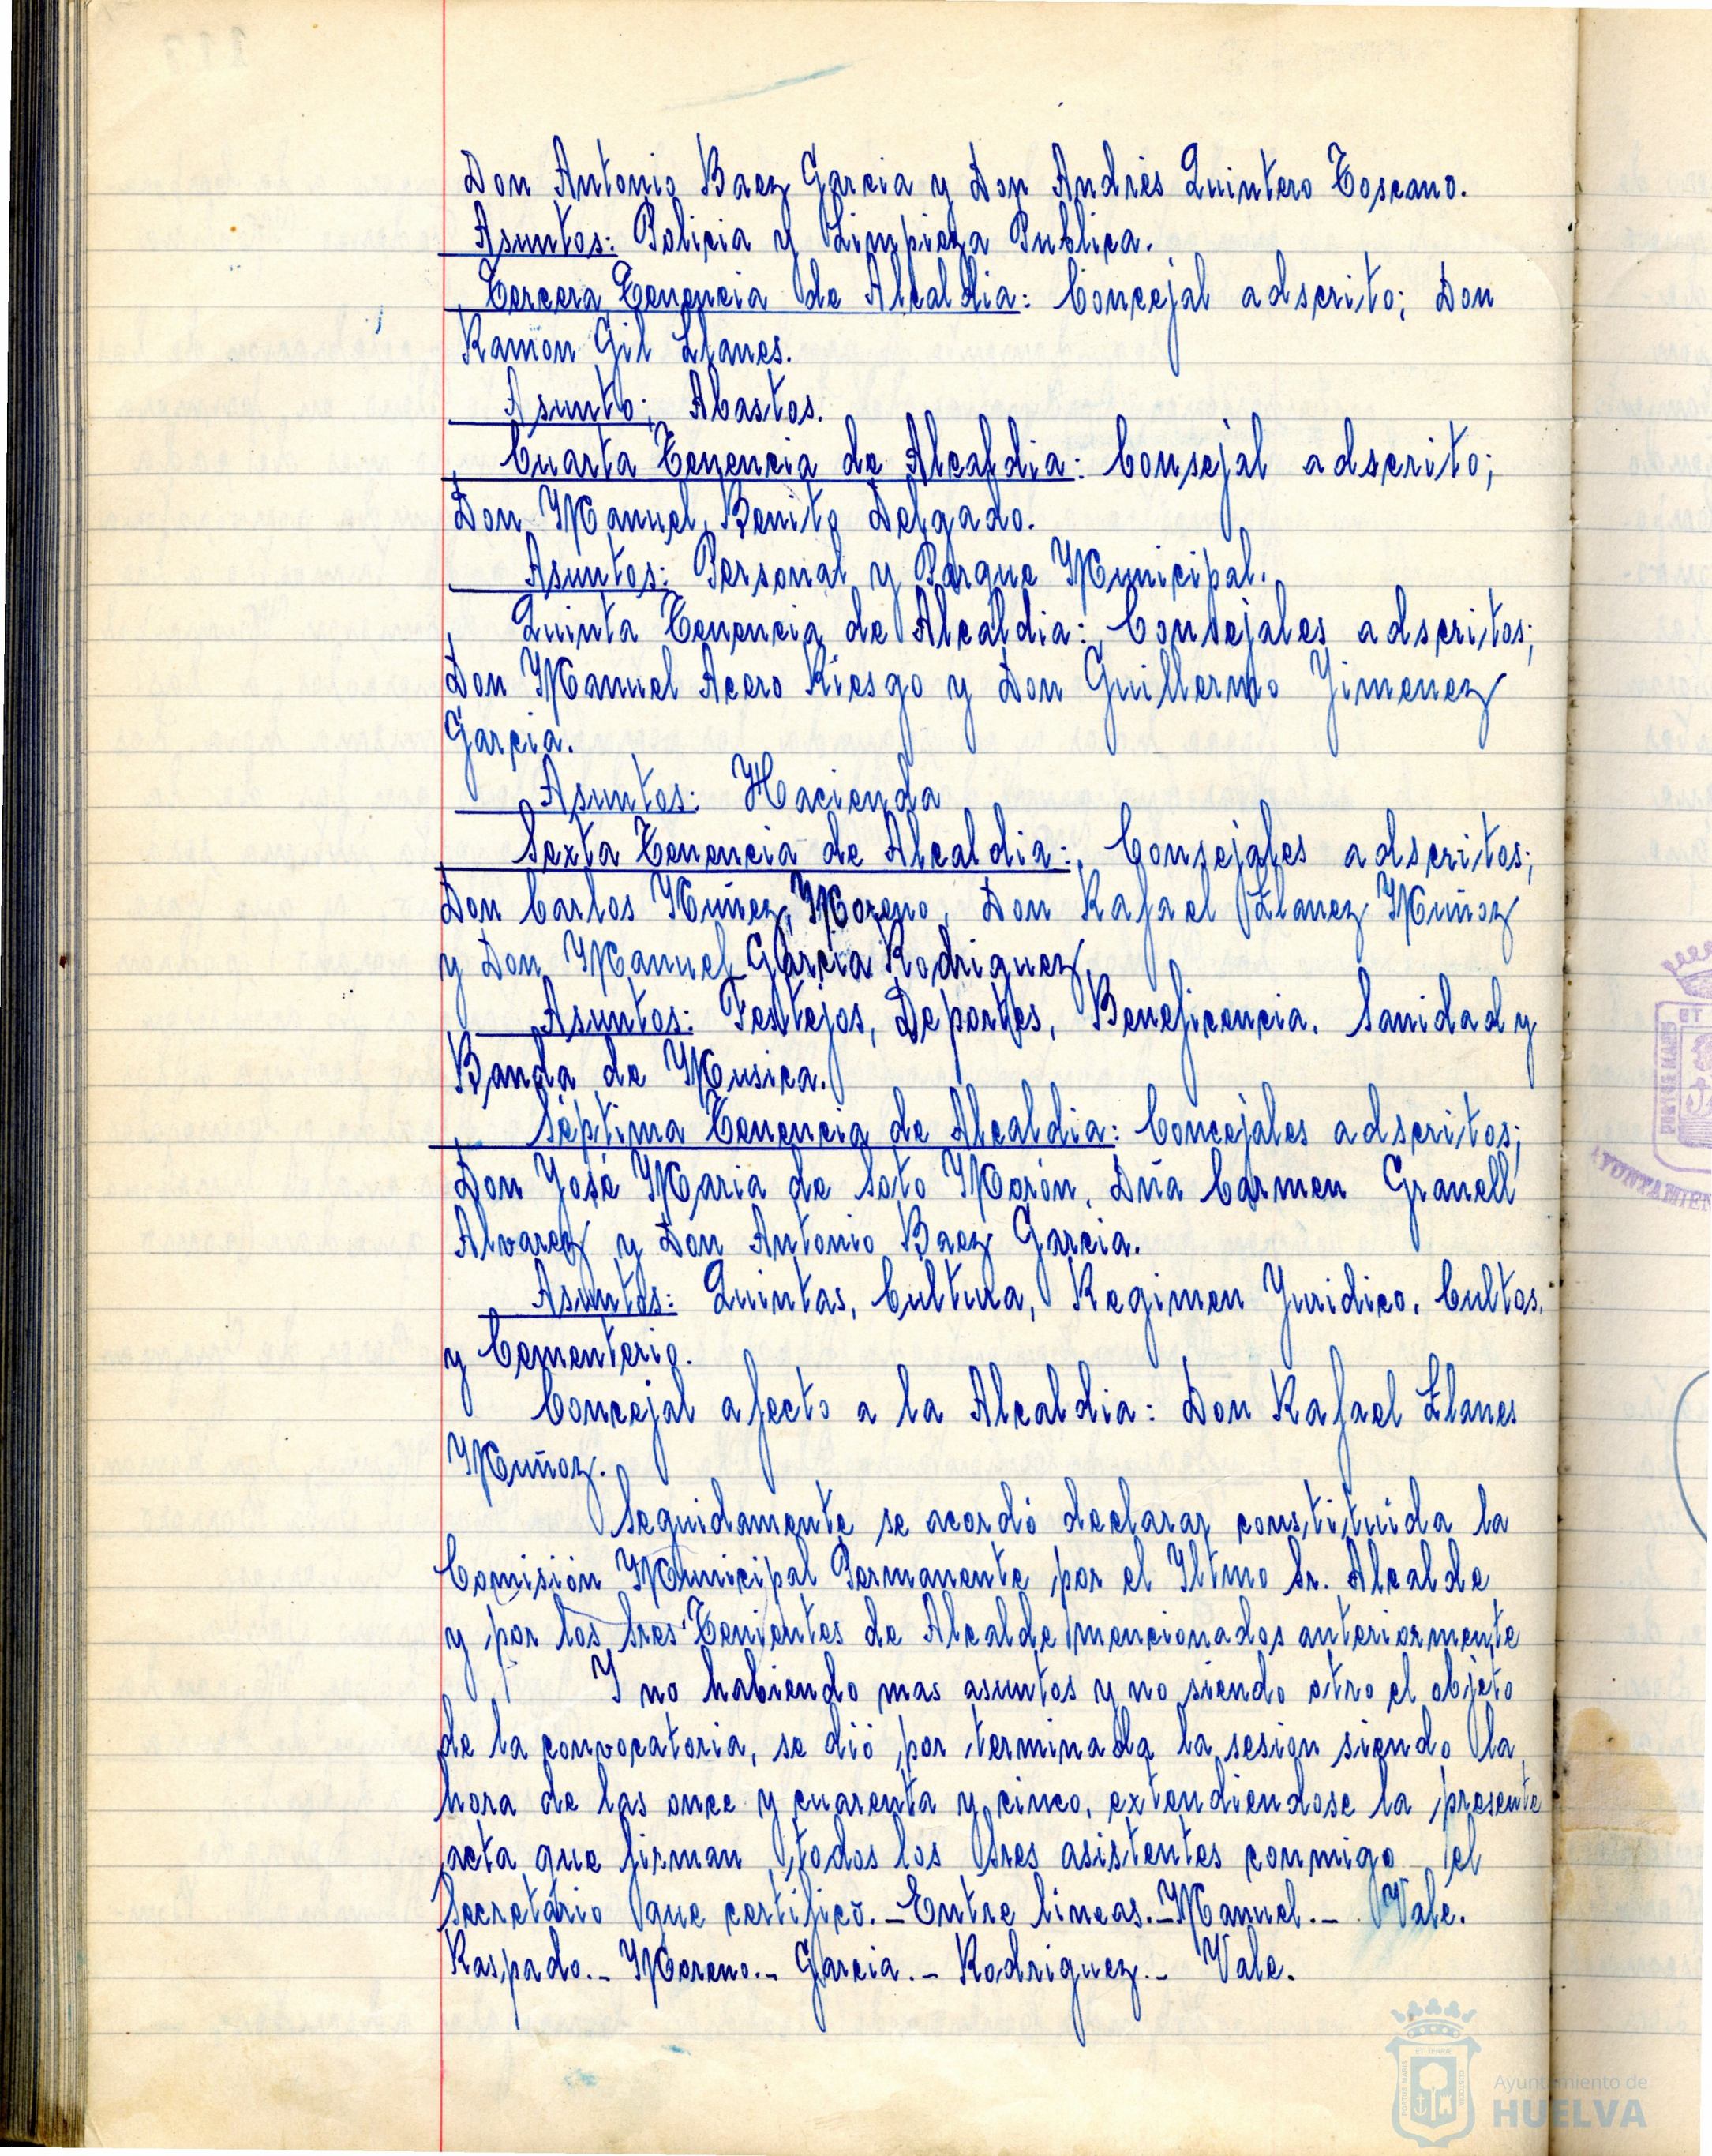 Don Antonio Baez Garcia y Don Andrés Quintero Toscano.
Asuntos: Policia y Limpieza Publica.
Tercera Tenencia de Alcaldia: Concejal adscrito; Don
Ramón Gil Llanes.
Asunto; Abastos.
Cuarta Tenencia de Alcaldia: Consejal adscrito;
Don Manuel Benito Delgado.
Asuntos: Personal y Parque Municipal.
Quinta Tenencia de Alcaldia: Consejales adscritos;
Don Manuel Acero Riesgo y Don Guillermo Jimenez
Garcia.
Asuntos: Hacienda
Sexta Tenencia de Alcaldia: Consejales adscritos;
Don Carlos Nuñez Moreno, Don Rafael Llanez Muñoz
y Don Manuel Garcia Rodriguez
Asuntos: Festejos, Deportes, Beneficencia. Sanidad y
Banda de Musica.
Séptima Tenencia de Alcaldia: Concejales adscritos;
Don José Maria de Soto Morón, Dña Carmen Granell
Alvarez y Don Antonio Baez Garcia.
Asuntos: Quintas, Cultura, Regimen Juridico. Cultos
y Cementerio.
Concejal afecto a la Alcaldia: Don Rafael Llanes
Muñoz.
Seguidamente se acordó declarar constituida la
Comisión Municipal Permanente por el Iltmo Sr. Alcalde
y por los Sres Tenientes de Alcalde mencionados anteriormente
Y no habiendo mas asuntos y no siendo otro el objeto
de la convocatoria, se dió por terminada la sesión siendo la
hora de las once y cuarenta y cinco, extendiendose la presente
acta que firman todos los Sres asistentes conmigo el
Secretario que certifico.- Entre lineas.- Manuel.- Vale.
Raspado.- Moreno.- Garcia.- Rodriguez.- Vale.
PORTUS MARIS
ET
AYUNTAMIEN
Ayuntamiento de
HUELVA